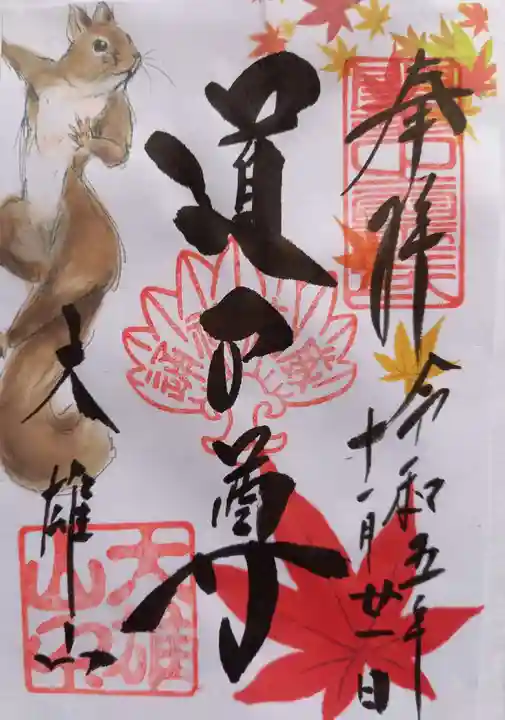 奉拝
令和五年
十一月廿一日
道了尊
大雄山